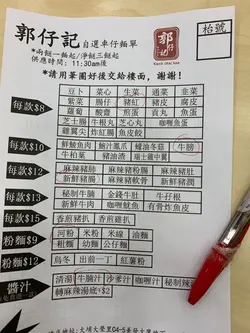 郭仔記 自選車仔麵單
郭仔記
枱號
*兩餸一麵起/淨餸三餸起
供應時間: 11:30am後
*請用筆圈好後交給樓面,謝謝!
每款$8
豆卜 菜心 生菜 通菜 韭菜
紫菜 腸仔 豬紅 豬皮 腐皮
蘿蔔 酸菜 煎蛋 貢丸 魚蛋
芝士腸 牛根丸 芝心丸 咖喱魚蛋
雞翼尖 炸紅腸 魚皮餃
每款$10
鮮鮫魚肉 鮑汁鳳爪 蠔油冬菇 牛膀
牛柏葉 豬油渣 瑞士雞中翼
每款$12
麻辣豬肺 新鮮豬肺 麻辣豬肚
新鮮豬腸 麻辣豬軟骨 新鮮豬大腸
每款$13
秘制牛腩 金錢牛肚 牛孖根
咖喱魷魚 生根 有骨炸魚皮
每款$15
香煎豬扒 香煎雞扒
粉麵$9
河粉 米粉 米線 油麵 幼麵
粗麵 幼麵 公仔麵
粉麵$12
烏冬 出前一丁 紅薯粉
醬汁
清湯 牛腩汁 沙爹汁 咖喱汁 秘制辣
轉麻辣湯底+$2
大埔大榮里